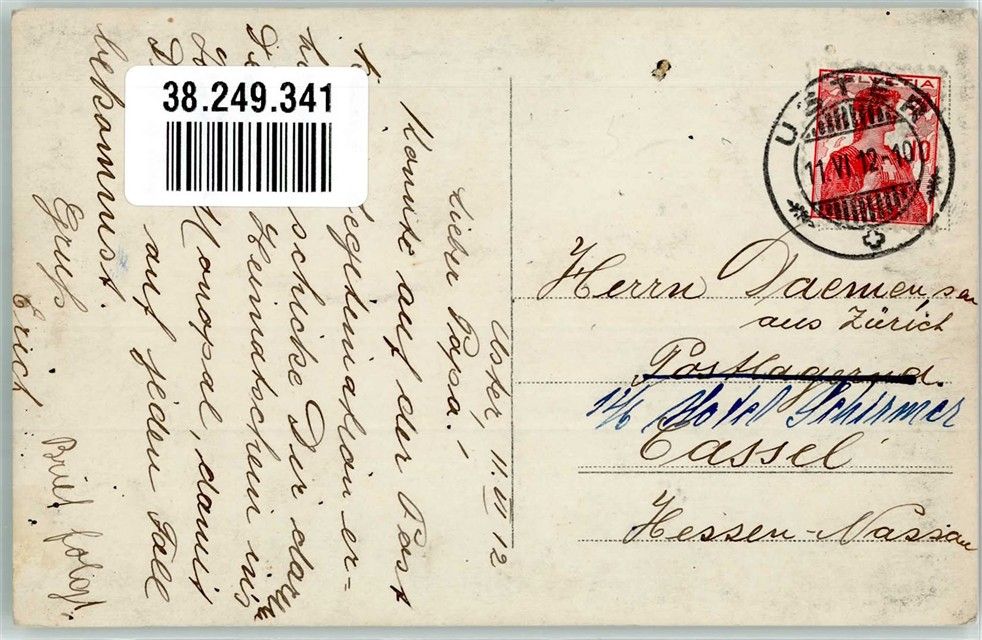 38.249.341
HELVETIA
USTER
11.VI.12-10
Herrn Daemen, sen
aus Zürich
Postlagernd.
Hotel Schirmer
Cassel
Hessen-Nassau
Uster, 11. VI 12
Lieber Papa!
Konnte auf der Post
er-
schicke Dir
Heimatschein ins
Monopol, damit
auf jeden Fall
bekommst.
Gruß
Erich
Brief folgt.